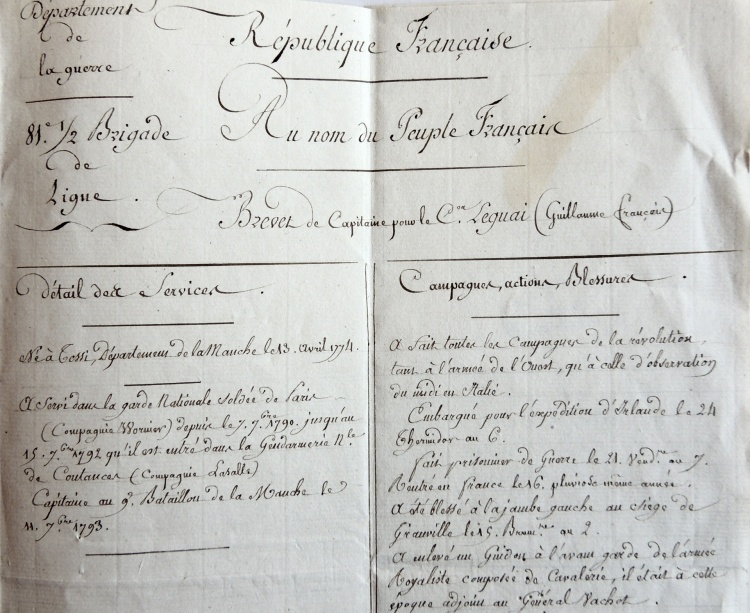 Département
de
la guerre
République Française.
81.e 1/2 Brigade
de
Ligne.
Au nom du Peuple Français
Brevet de Capitaine pour le C.en Leguai (Guillaume françois)
Détail des Services.
Né à Tessi, Département de la Manche le 13. avril 1774.
A Servi dans la garde Nationale Soldée de Paris
(Compagnie Wormier) depuis le 7. 7.bre 1790. jusqu'au
15. 7.bre 1792 qu'il est entré dans la Gendarmerie N.le
de Coutances (Compagnie Lasalle)
Capitaine au 9.e Bataillon de la Manche le
11. 7.bre 1793.
Campagnes, actions, Blessures.
A fait toutes les Campagnes de la révolution,
tant à l'armée de l'Ouest, qu'à celle d'observation
du midi en Italie.
Embarqué pour l'expédition d'Irlande le 24
thermidor au 6.
fait prisonnier de Guerre le 21. Vend.re au 7.
Rentré en france le 16. pluviose même année.
A été blessé à la jambe gauche au siège de
Granville le 15. Brum.re au 2.
A enlevé un Guidon à l'avant garde de l'armée
Royaliste composée de Cavalerie, il était à cette
époque adjoint au Général Vachot.